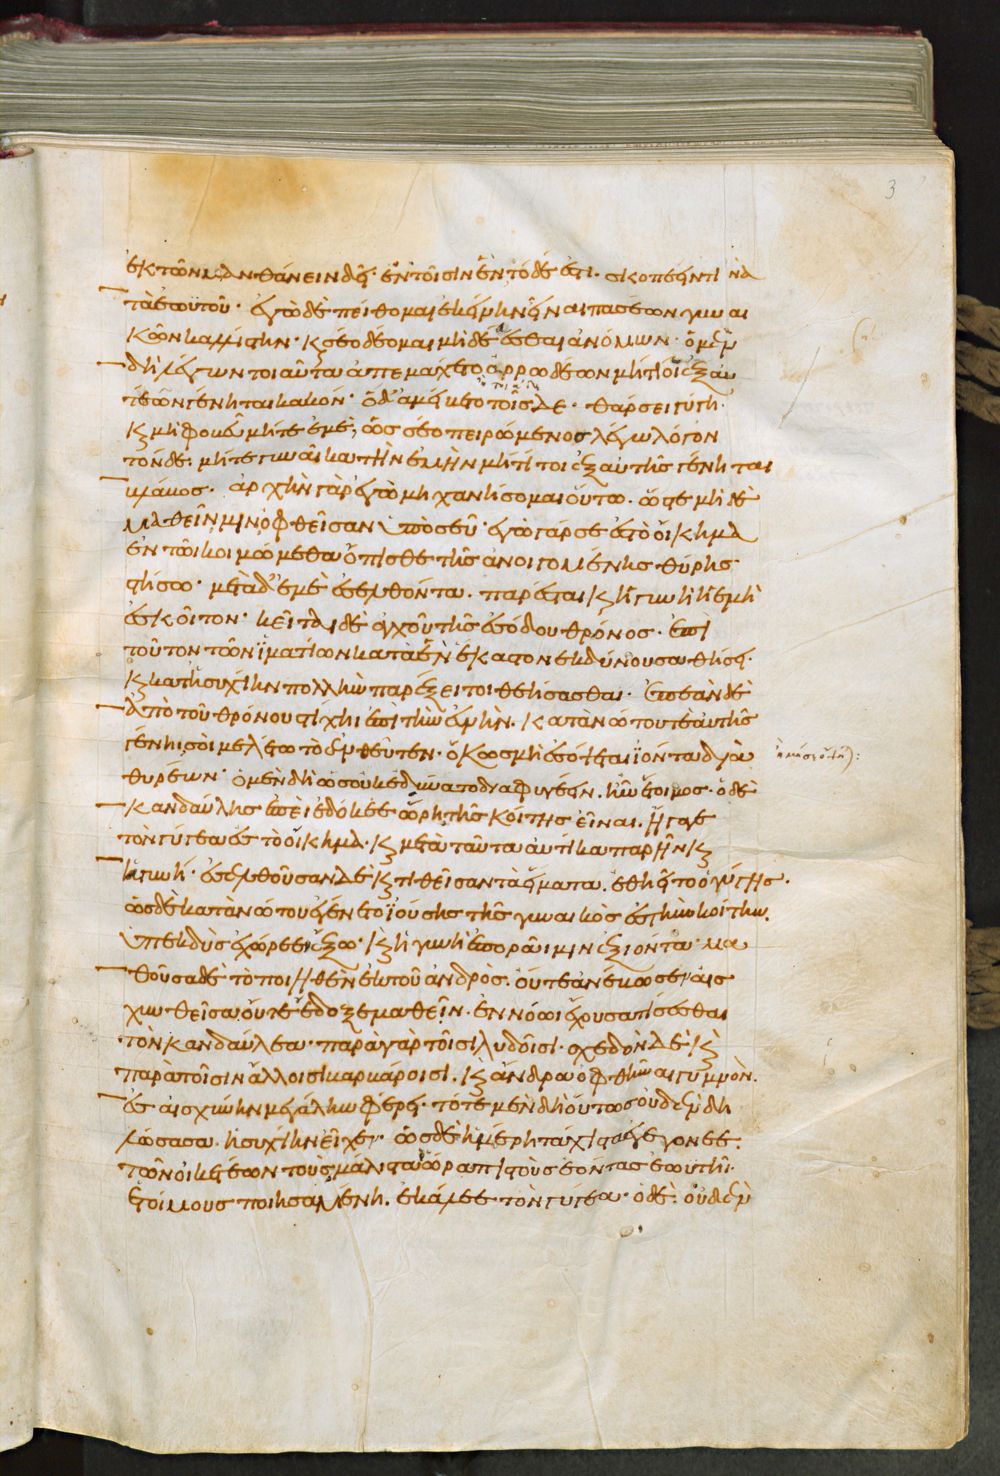 3
ἐκ τῶν μανθάνειν δεῖ· ἐν τοῖσιν ἓν τόδε ἐστί· σκοπέειν τινὰ
τὰ ἑωυτοῦ· ἐγὼ δὲ πείθομαι ἐκείνην εἶναι πασέων γυναι
κῶν καλλίστην· κ σέο δέομαι μὴ δέεσθαι ἀνόμων· ὁ μὲν
δὴ λέγων τοιαῦτα ἀπεμάχετο ἀρρωδέων μή τί οἱ ἐξ αὐ
τέων γένηται κακόν· ὁ δ' ἀμείβετο τοῖσδε· θάρσει γύγη·
κ μὴ φοβεῦ μήτε ἐμέ, ὥς σεο πειρώμενος λέγω λόγον
τόνδε· μήτε γυναῖκα τὴν ἐμὴν μή τί τοι ἐξ αὐτῆς γένηται
βλάβος· ἀρχὴν γὰρ ἐγὼ μηχανήσομαι οὕτω· ὥστε μηδὲ
μαθεῖν μιν ὀφθεῖσαν ὑπὸ σεῦ· ἐγὼ γάρ σε ἐς τὸ οἴκημα
ἐν τῶι κοιμώμεθα ὄπισθε τῆς ἀνοιγομένης θύρης
στήσω· μετὰ δ' ἐμὲ ἐσελθόντα· παρέσται κ ἡ γυνὴ ἡ ἐμὴ
ἐς κοῖτον· κεῖται δὲ ἀγχοῦ τῆς ἐσόδου θρόνος· ἐπὶ
τοῦτον τῶν ἱματίων κατὰ ἓν ἕκαστον ἐκδύνουσα θήσει·
κ κατ' ἡσυχίην πολλὴν παρέξει τοι θεήσασθαι· ἐπεὰν δὲ
ἀπὸ τοῦ θρόνου στίχῃ ἐπὶ τὴν εὐνήν· κατὰ νώτου τε αὐτῆς
γένῃ, σοὶ μελέτω τὸ ἐνθεῦτεν· ὅκως μή σε ὄψεται ἰόντα διὰ
θυρέων· ὁ μὲν δὴ ὡς οὐκ ἐδύνατο διαφυγέειν· ἦν ἕτοιμος· ὁ δὲ
κανδαύλης ἐπεὶ ἐδόκεε ὥρη τῆς κοίτης εἶναι· ἤγαγε
τὸν γύγεα ἐς τὸ οἴκημα· κ μετὰ ταῦτα αὐτίκα παρῆν κ
ἡ γυνή· ἐσελθοῦσαν δὲ κ τιθεῖσαν τὰ εἵματα· ἐθηεῖτο ὁ γύγης·
ὡς δὲ κατὰ νώτου ἐγένετο ἰούσης τῆς γυναικὸς ἐς τὴν κοίτην·
ὑπεκδὺς ἐχώρεε ἔξω· κ ἡ γυνὴ ἐπορᾶι μιν ἐξιόντα· μα
θοῦσα δὲ τὸ ποιηθὲν ἐκ τοῦ ἀνδρός· οὔτε ἀνέβωσε αἰσ
χυνθεῖσα οὔτε ἔδοξε μαθεῖν· ἐν νόωι ἔχουσα τίσεσθαι
τὸν κανδαύλεα· παρὰ γὰρ τοῖσι λυδοῖσι· σχεδὸν δὲ κ
παρὰ τοῖσιν ἄλλοισι βαρβάροισι· κ ἄνδρα ὀφθῆναι γυμνόν·
ἐς αἰσχύνην μεγάλην φέρει· τότε μὲν δὴ οὕτως οὐδὲν δη
λώσασα· ἡσυχίην εἶχε· ὡς δὲ ἡμέρη τάχιστα ἐγεγόνεε·
τῶν οἰκετέων τοὺς μάλιστα ὥρα πιστοὺς ἐόντας ἑωυτῆι·
ἑτοίμους ποιησαμένη· ἐκάλεε τὸν γύγεα· ὁ δὲ· οὐδὲν